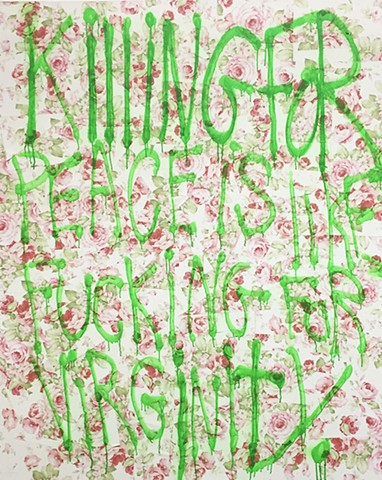 KILLING FOR
PEACE IS LIKE
FUCKING FOR
VIRGINITY.